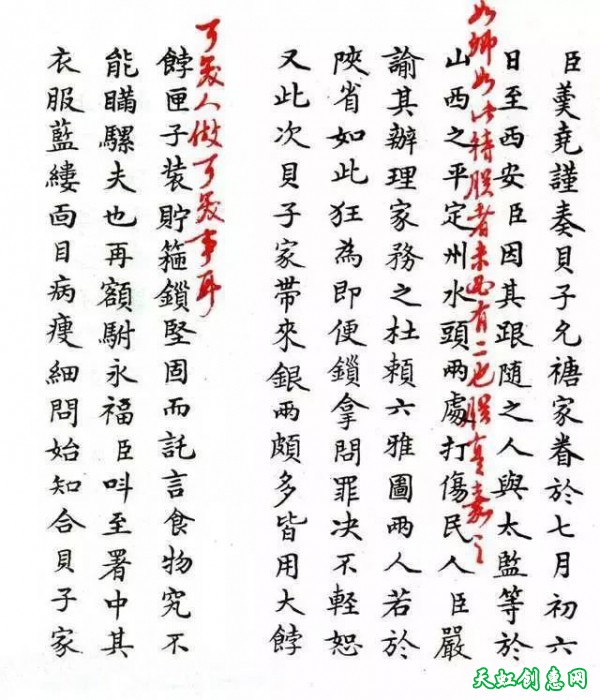 臣羹堯謹奏貝子允禟家眷於七月初六
日至西安臣因其跟隨之人與太監等於
如卿如此待朕者未必有二也朕真嘉之
山西之平定州水頭兩處打傷民人臣嚴
諭其辦理家務之杜賴六雅圖兩人若於
陝省如此狂為即便鎖拿問罪決不輕恕
又此次貝子家帶來銀兩頗多皆用大餑
可笑人做可笑事耳
餑匣子裝貯箍鎖堅固而託言食物究不
能瞞騾夫也再額駙永福臣呌至署中其
衣服藍縷面目病瘦細問始知合貝子家
天虹创意网